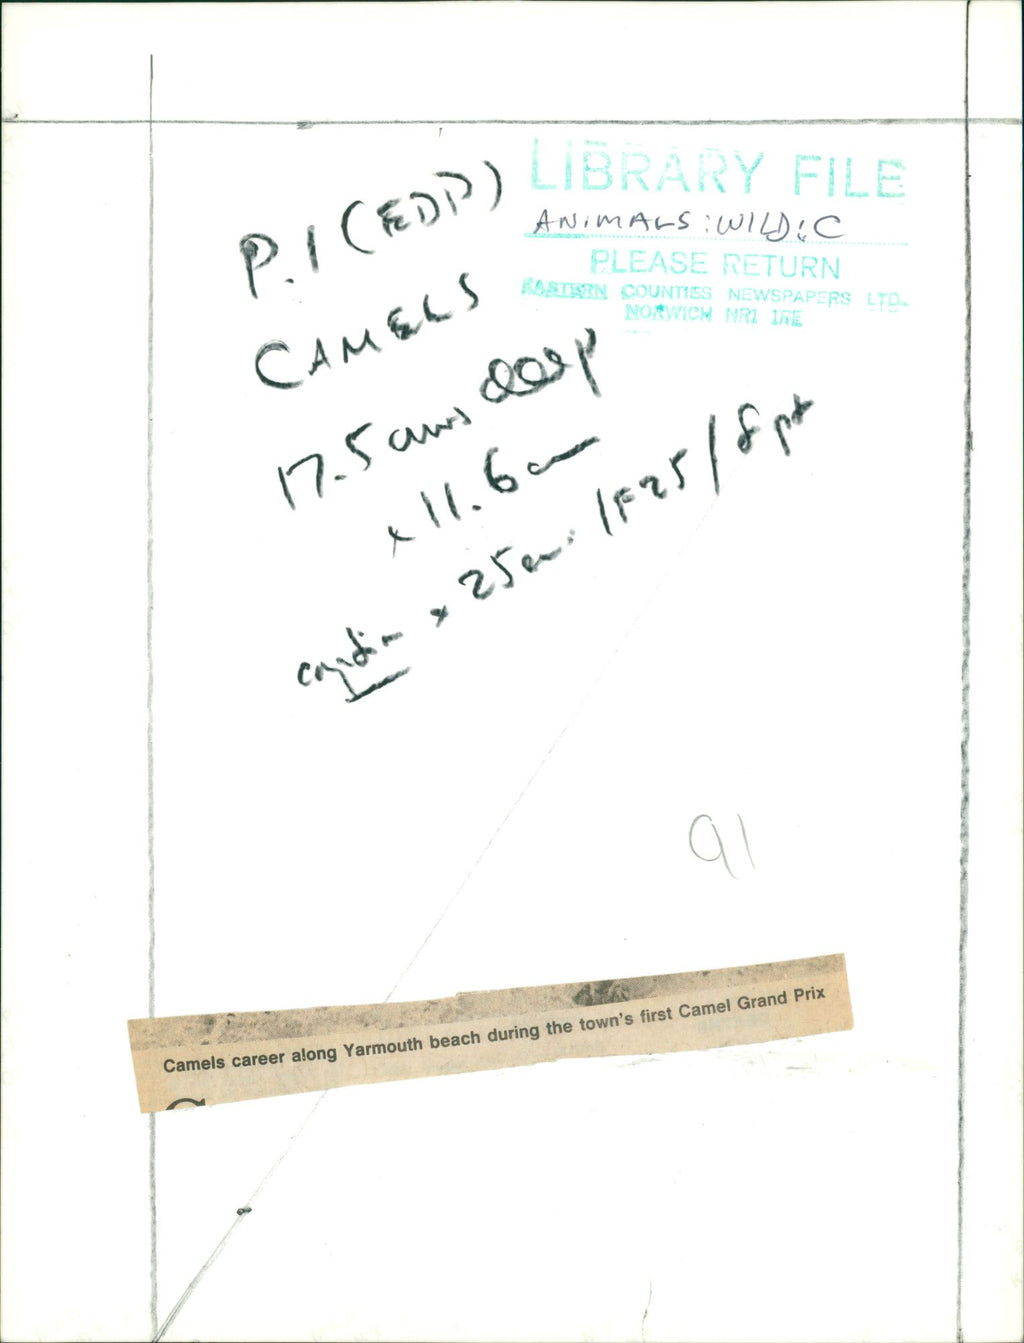 LIBRARY FILE
ANIMALS: WILD: C
PLEASE RETURN
EASTERN COUNTIES NEWSPAPERS LTD.
NORWICH NR1 1RE
P.1 (EDP)
CAMELS
17.5 cms deep
x 11.6 cm
caption x 25 cm. 1F25/8pt
91
Camels career along Yarmouth beach during the town's first Camel Grand Prix